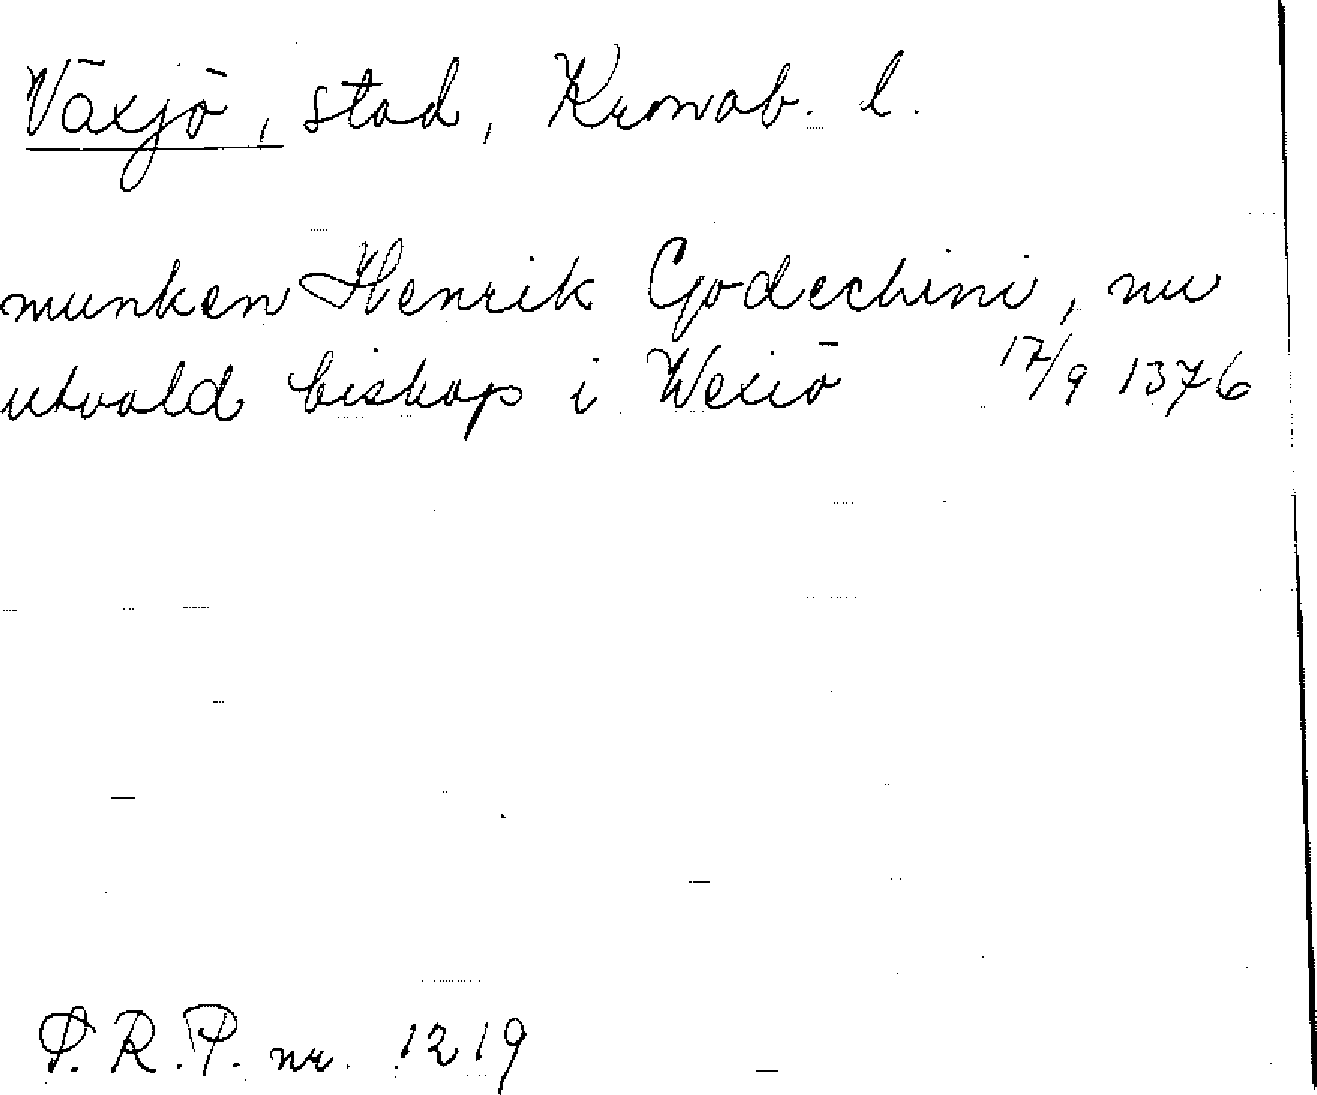 Växjö, stad, Kronob. l.
munken Henrik Godechini, nu
utvald biskop i Wexiö 17/9 1376
P.R.P. nr. 1219